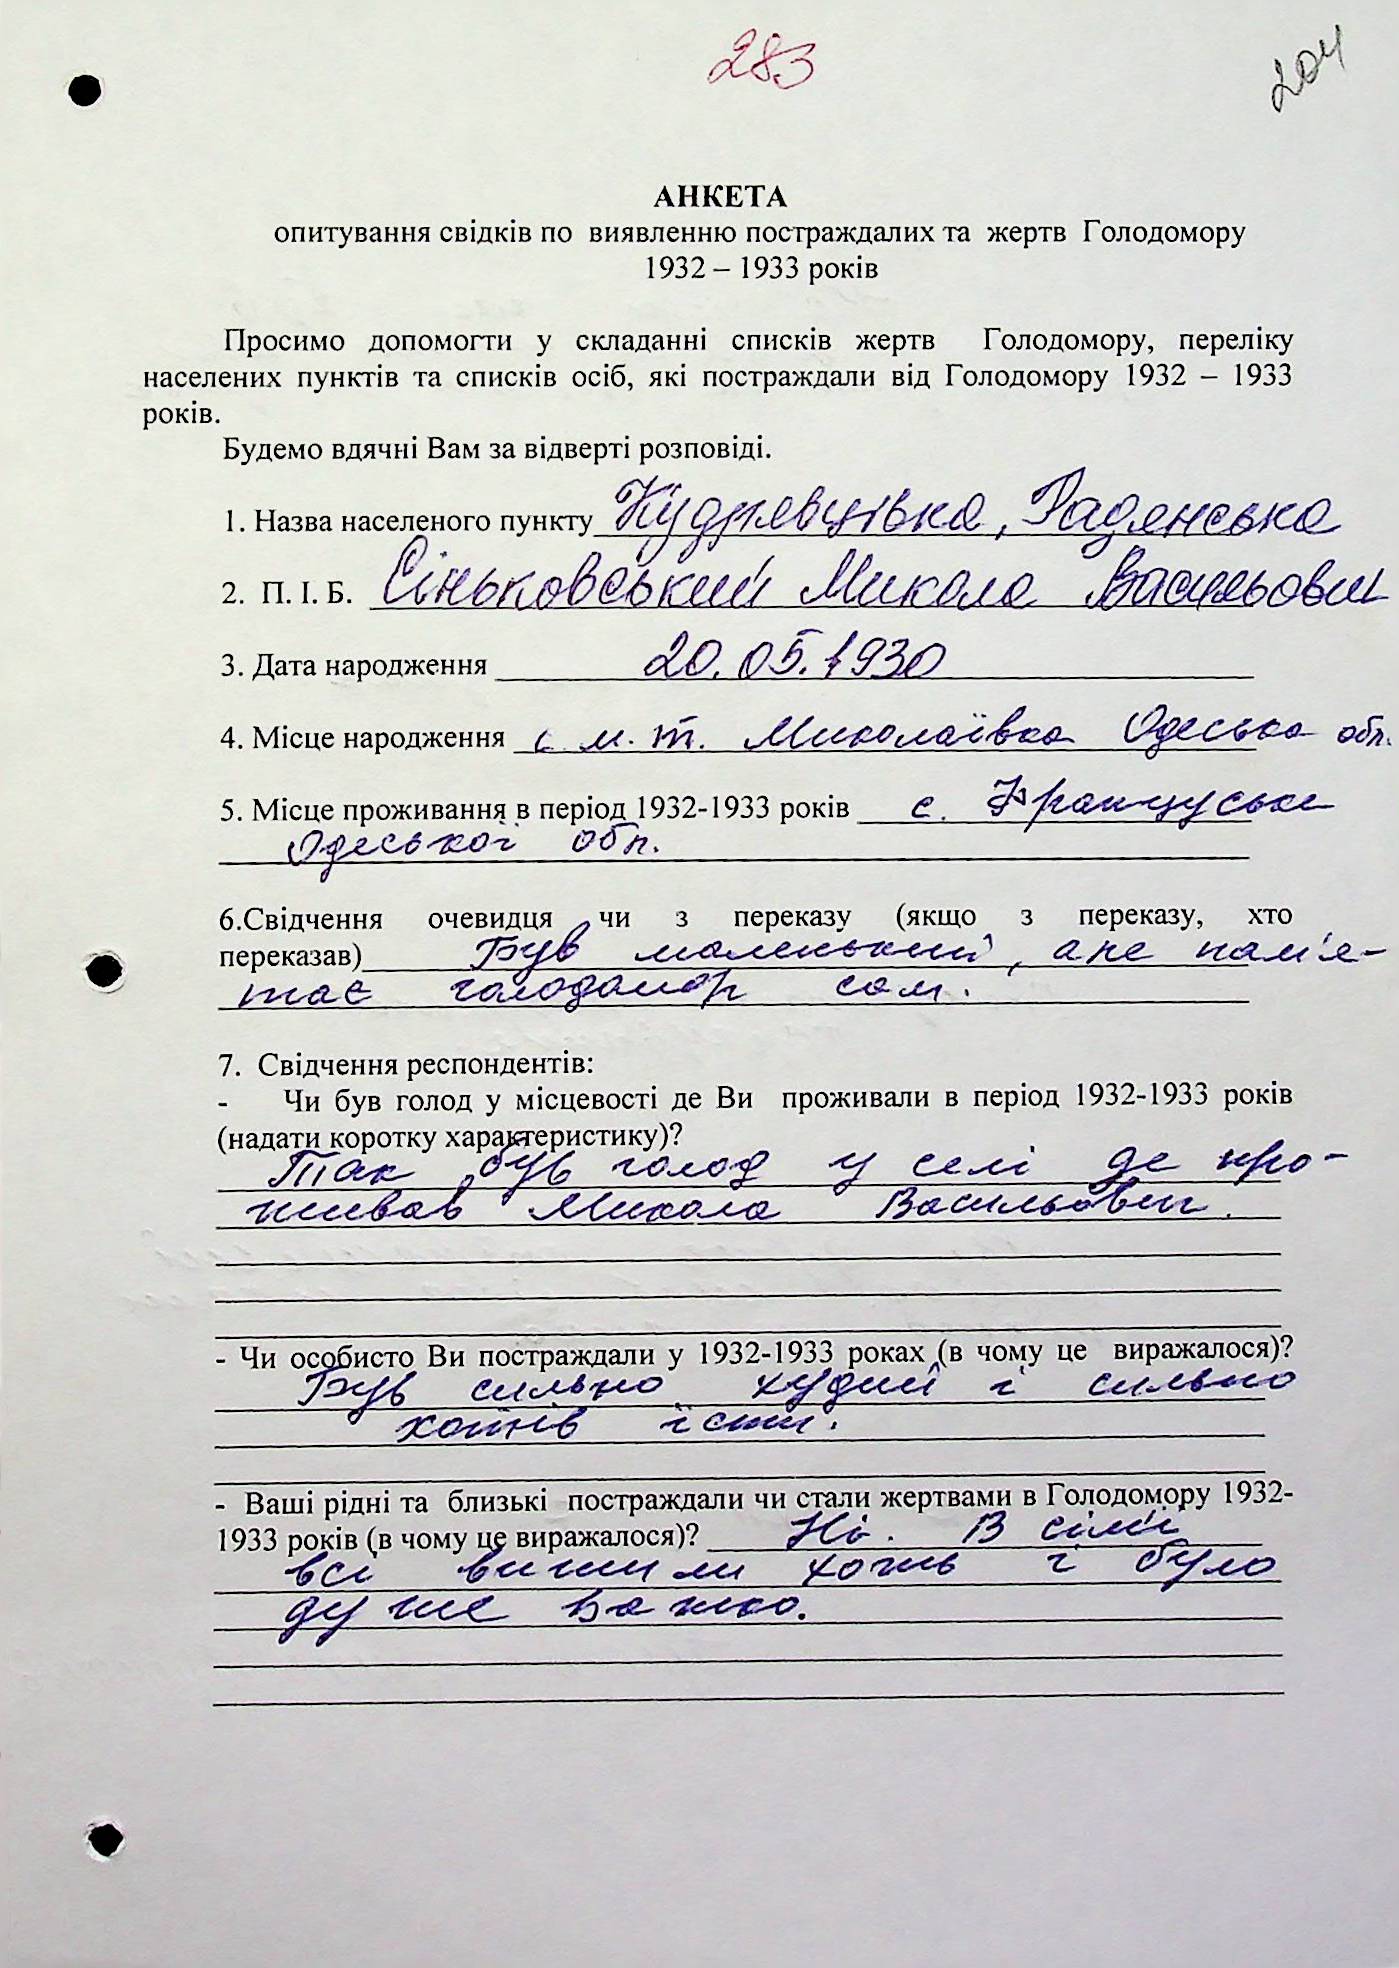 283
204
АНКЕТА
опитування свідків по виявленню постраждалих та жертв Голодомору
1932 – 1933 років
Просимо допомогти у складанні списків жертв Голодомору, переліку
населених пунктів та списків осіб, які постраждали від Голодомору 1932 – 1933
років.
Будемо вдячні Вам за відверті розповіді.
1. Назва населеного пункту Кудрявцівка, Радянська
2. П. І. Б. Сіньковський Микола Васильович
3. Дата народження 20.05.1930
4. Місце народження с.м.т. Миколаївка Одеська обл.
5. Місце проживання в період 1932-1933 років с. Французське
Одеської обл.
6.Свідчення очевидця чи з переказу (якщо з переказу, хто
переказав) Був маленький, але пам'я-
тає голодомор сам.
7. Свідчення респондентів:
- Чи був голод у місцевості де Ви проживали в період 1932-1933 років
(надати коротку характеристику)?
Так був голод у селі де про-
живав Микола Васильович.
- Чи особисто Ви постраждали у 1932-1933 роках (в чому це виражалося)?
Був сильно худий і сильно
хотів їсти.
- Ваші рідні та близькі постраждали чи стали жертвами в Голодомору 1932-
1933 років (в чому це виражалося)? Ні. В сім'ї
всі вижили хочь і було
дуже важко.